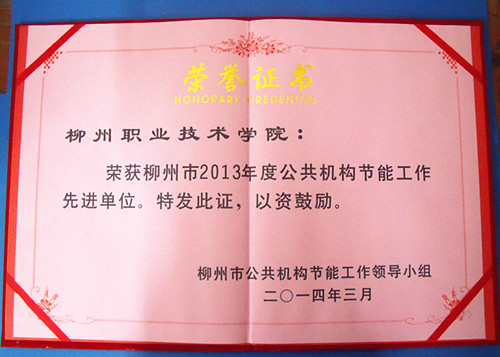 荣誉证书
HONORARY CREDENTIAL
柳州职业技术学院：
荣获柳州市2013年度公共机构节能工作
先进单位。特发此证，以资鼓励。
柳州市公共机构节能工作领导小组
二〇一四年三月